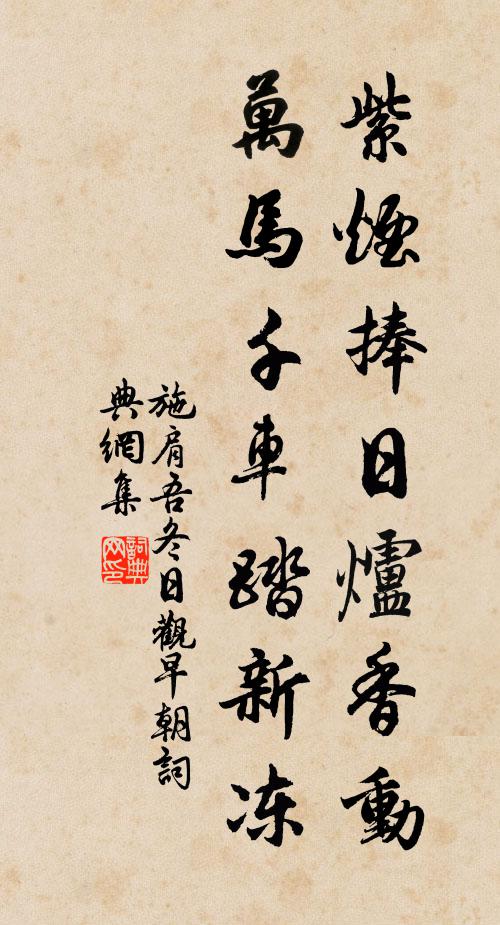 紫煙捧日爐香動
萬馬千車踏新冻
施肩吾冬日觀早朝詞
典網集
詞典网印